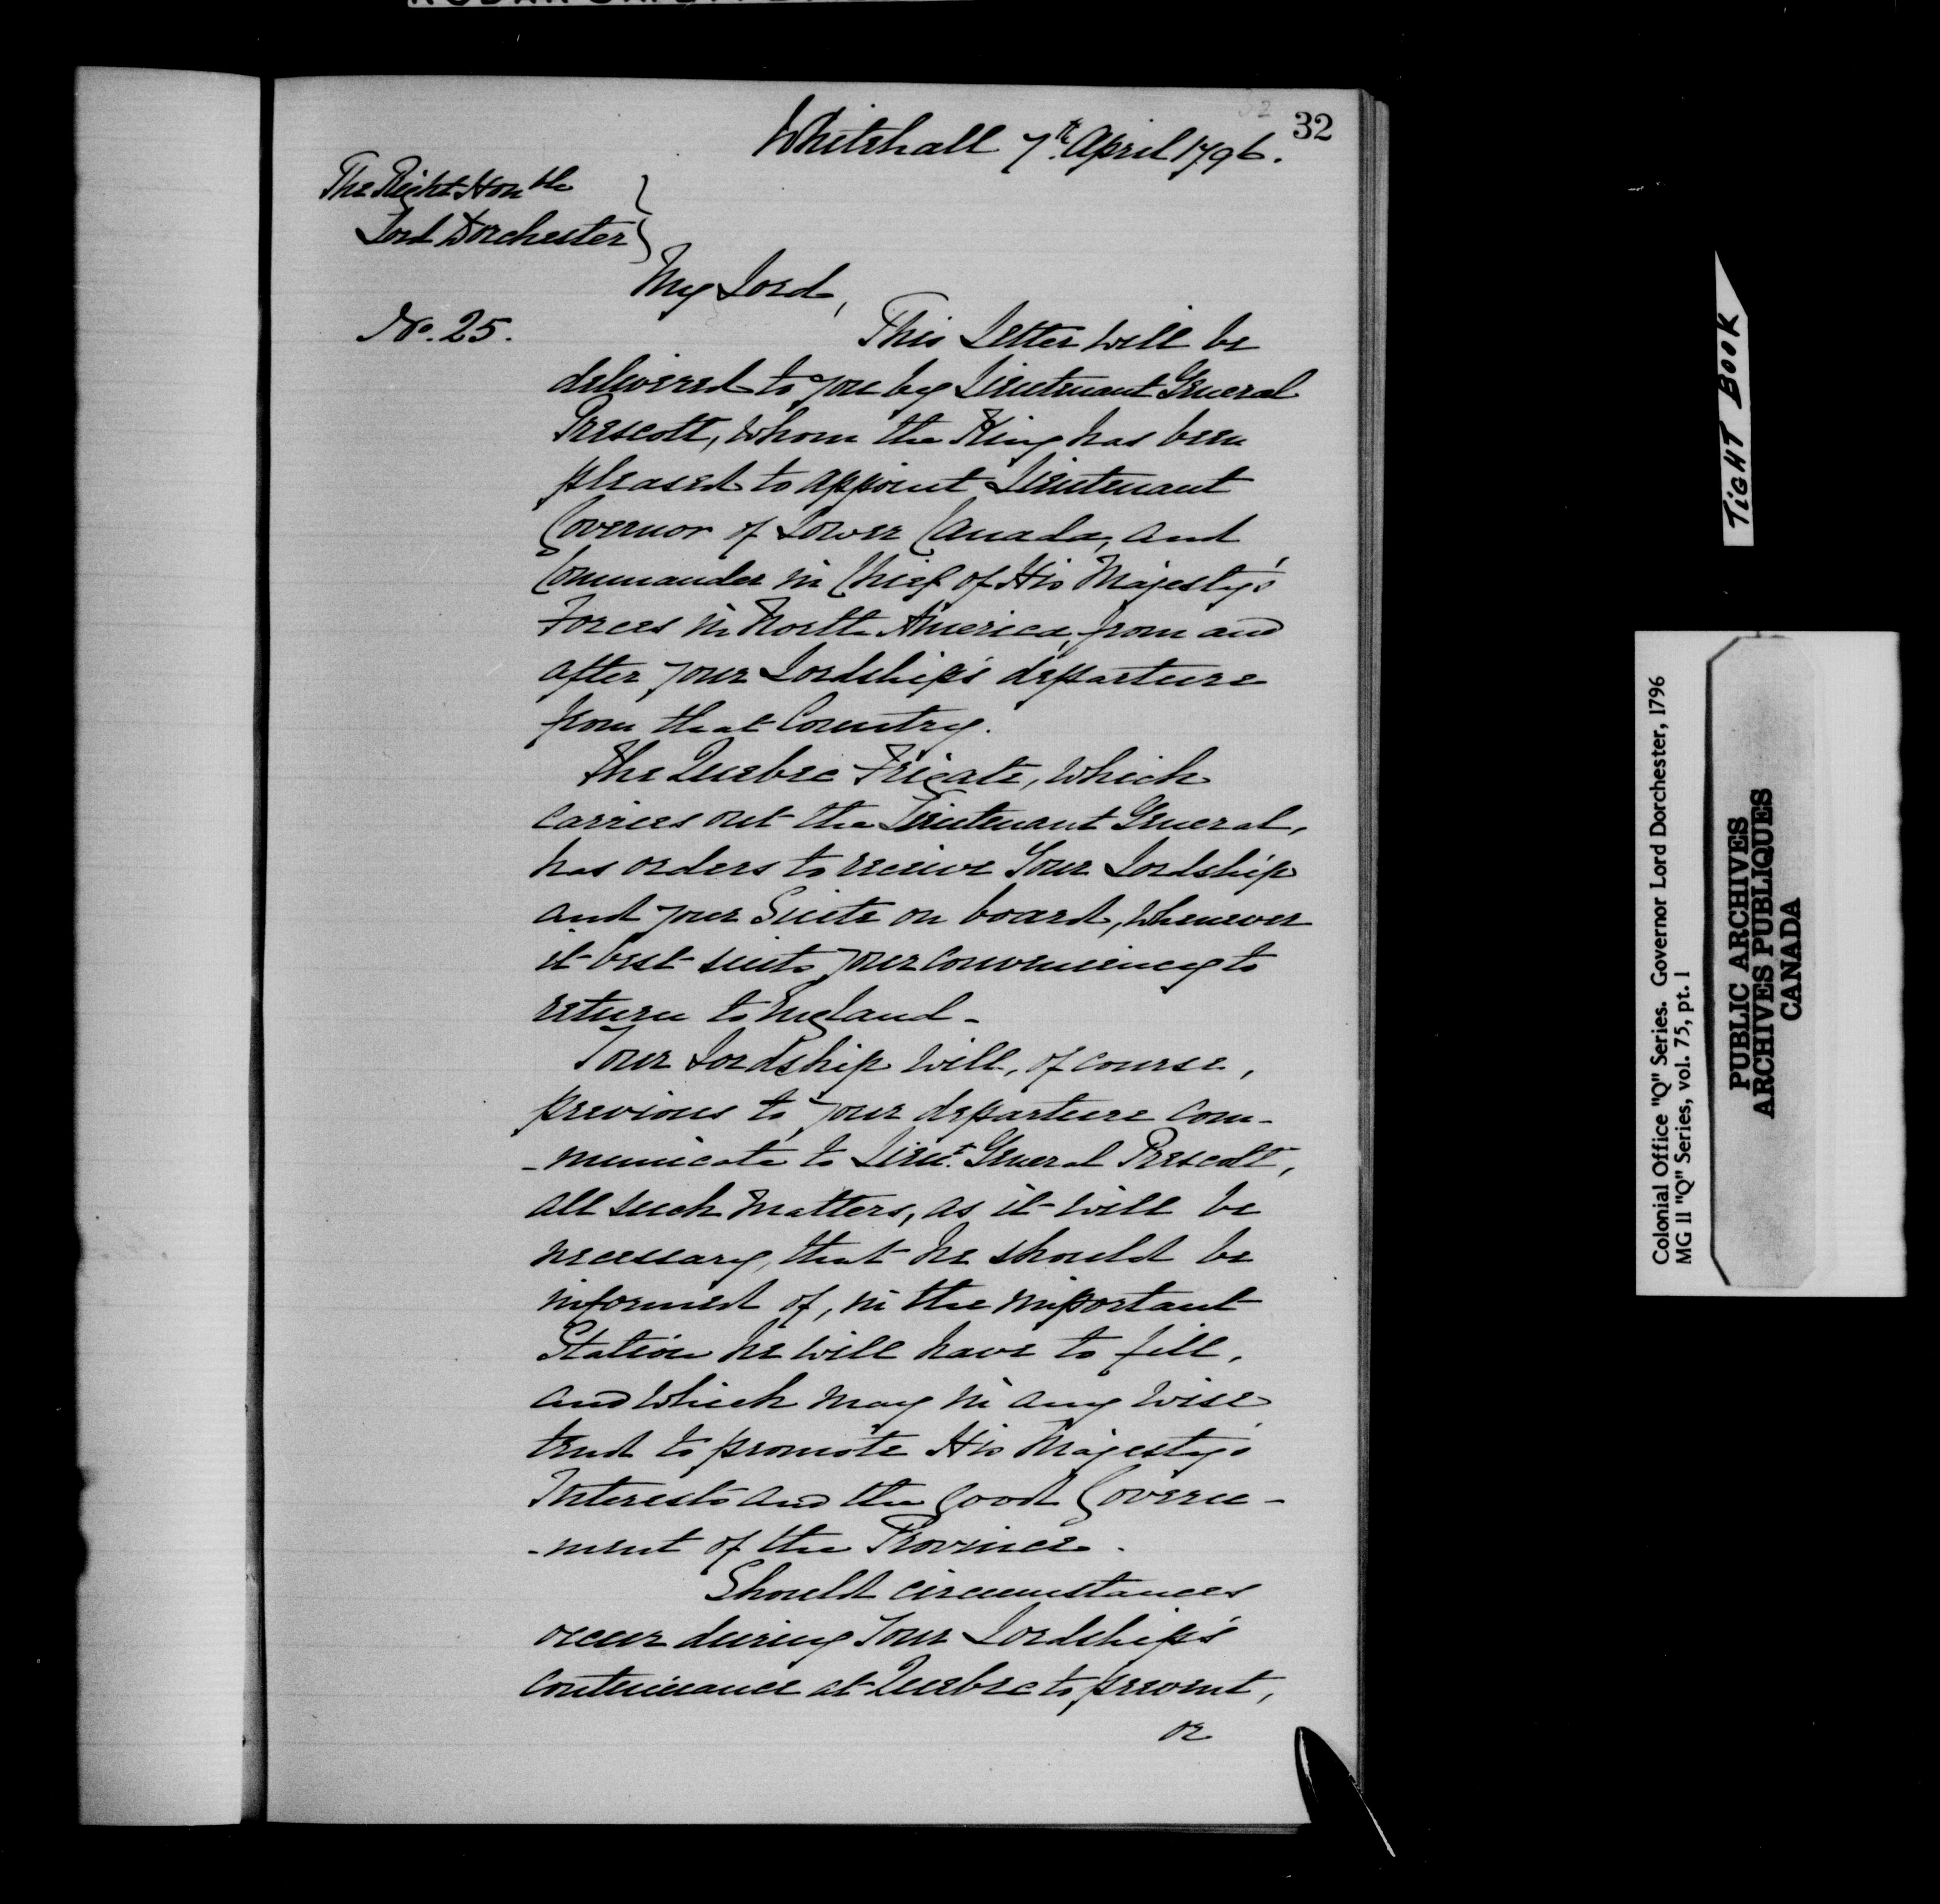 32
32
Whitehall 7th April 1796.
The Right Honble
Lord Dorchester
My Lord,
No. 25.
This Letter will be
delivered to you by Lieutenant General
Prescott, whom the King has been
pleased to appoint Lieutenant
Governor of Lower Canada, and
Commander in Chief of His Majesty's
Forces in North America, from and
after your Lordship's departure
from that Country.
The Quebec Frigate, which
carries out the Lieutenant General,
has orders to receive Your Lordship
and your Suite on board, whenever
it best suits your conveniency to
return to England -
Your Lordship will, of course,
previous to your departure com-
-municate to Lieut. General Prescott,
all such matters, as it will be
necessary, that he should be
informed of, in the important
Station he will have to fill,
and which may in any wise
tend to promote His Majesty's
Interests and the good Govern-
-ment of the Province.
Should circumstances
occur during Your Lordship's
continuance at Quebec to prevent,
or
TIGHT BOOK
Colonial Office "Q" Series. Governor Lord Dorchester, 1796
MG 11 "Q" Series, vol. 75, pt. 1
PUBLIC ARCHIVES
ARCHIVES PUBLIQUES
CANADA